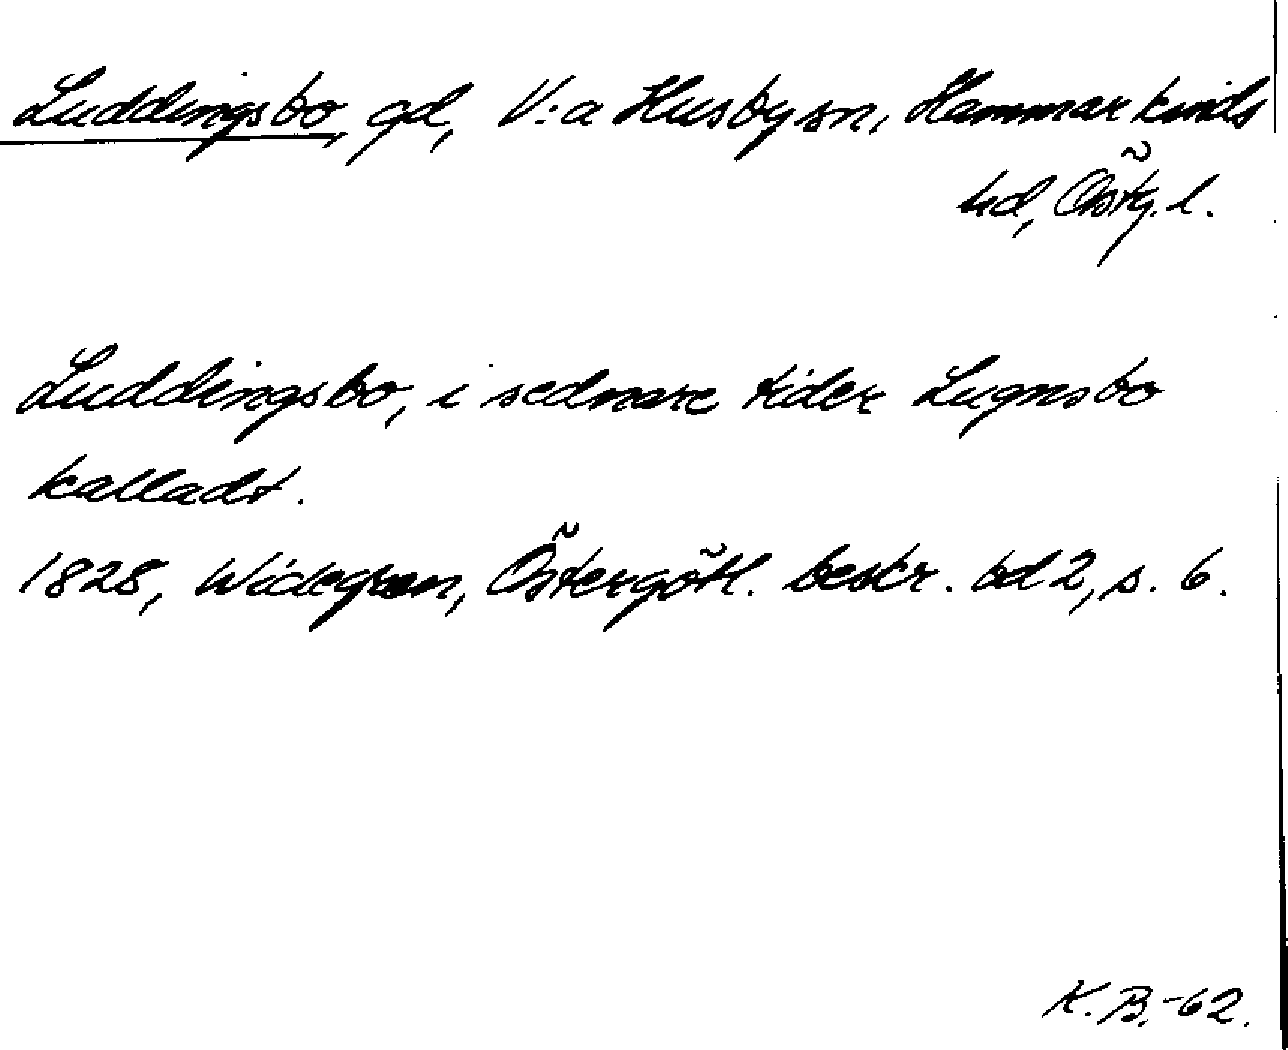 Luddingsbo, gd, V:a Husby sn, Hammarkinds
hd, Östg. l.
Luddingsbo, i sednare tider Lugnsbo
kalladt.
1828, Widegren, Östergötl. beskr. bd 2, s. 6.
K. B. -62.